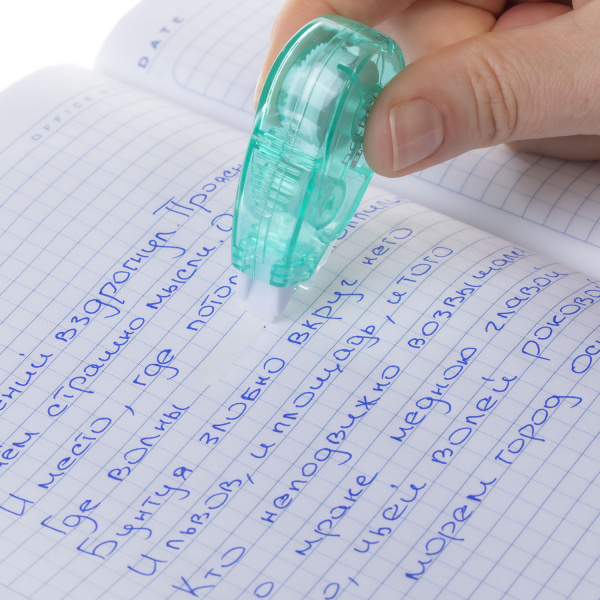 DATE
OFFICE
ений вздрогнул. Проясн
нём страшно мысли. О
И место, где потоп
Где волны
Бунтуя злобно вкруг него
И львов, и площадь, и того
Кто неподвижно возвышал
о мраке медною главой
о, чьей волей роковой
морем город ос